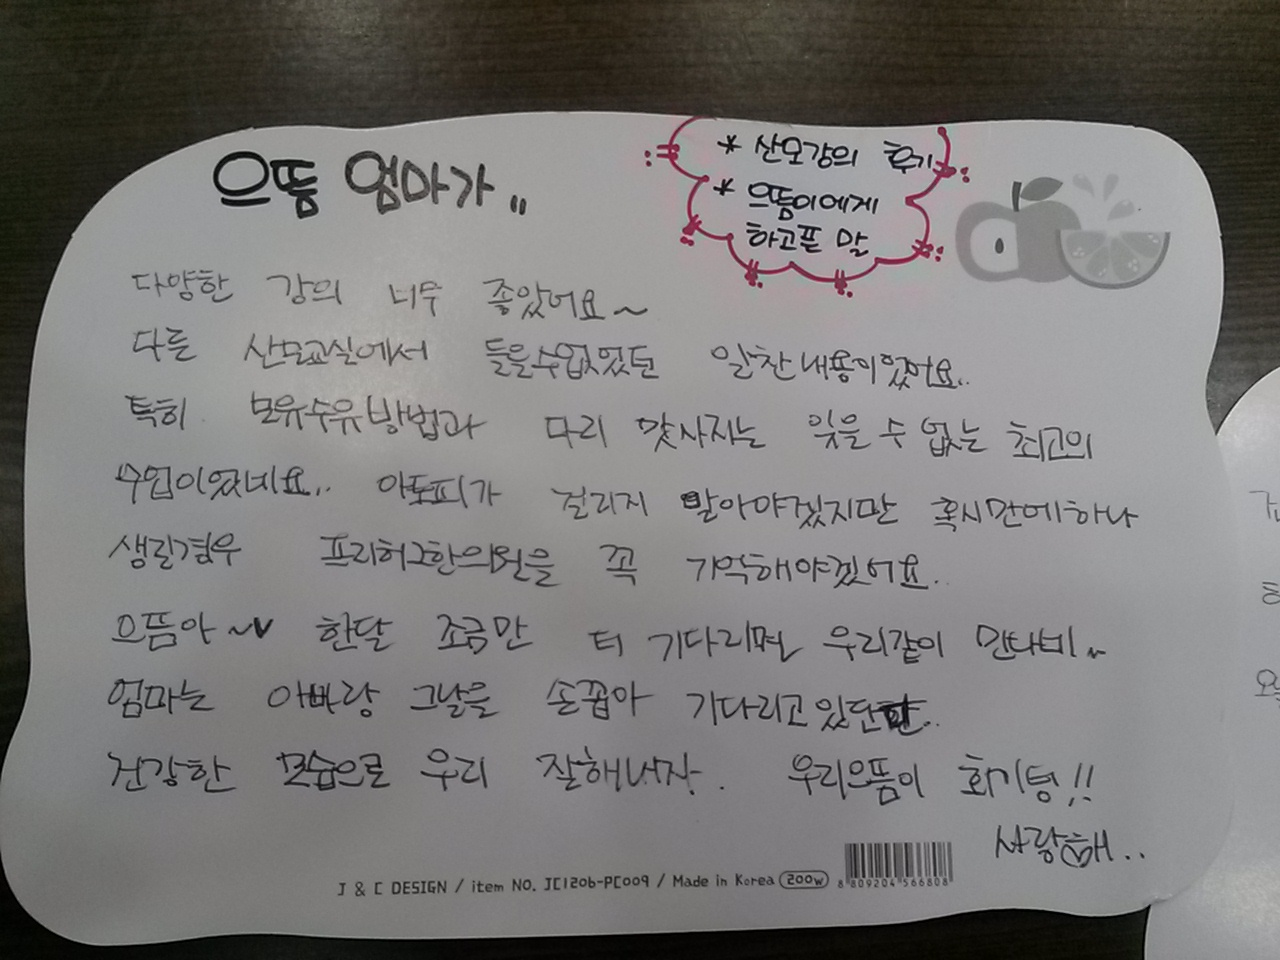 으뜸 엄마가..
* 산모강의 후기
* 으뜸이에게
하고픈 말
다양한 강의 너무 좋았어요~
다른 산모교실에서 들을수없었던 알찬내용이었어요..
특히 모유수유방법과 다리 맛사지는 잊을 수 없는 최고의
수업이었네요.. 아토피가 걸리지 말아야겠지만 혹시만에하나
생길경우 프리허그한의원을 꼭 기억해야겠어요..
으뜸아~ 한달 조금만 더 기다리면 우리같이 만나네~
엄마는 아빠랑 그날을 손꼽아 기다리고있단다..
건강한 모습으로 우리 잘해내자. 우리으뜸이 화기팅!!
사랑해..
J & C DESIGN / item NO. JC1206-PC009 / Made in Korea 200w
8 809204 566808